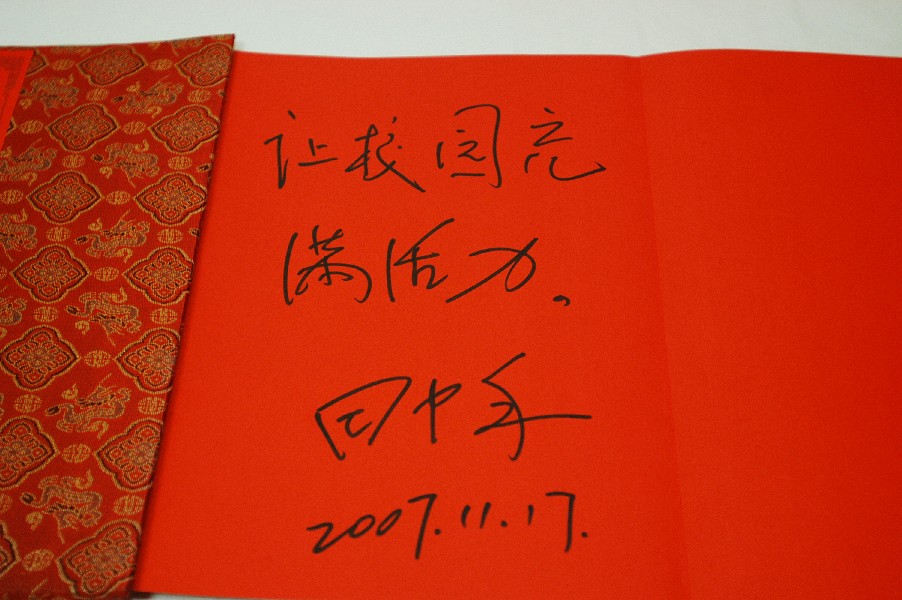 让校园充
满活力。
田中禾
2007.11.17.